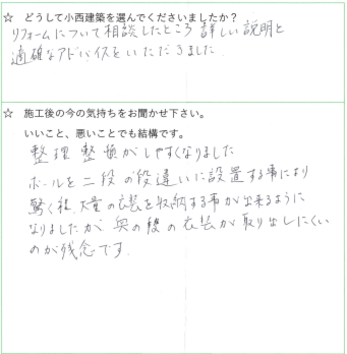 ☆ どうして小西建築を選んでくださいましたか?
リフォームについて相談したところ 詳しい説明と
適確なアドバイスをいただきました.
☆ 施工後の今の気持ちをお聞かせ下さい。
いいこと、悪いことでも結構です。
整理 整頓がしやすくなりました
ポールを二段の段違いに設置する事により
驚く程、大量の衣装を収納する事が出来るように
なりましたが 奥の後の衣装が取り出しにくい
のが残念です.